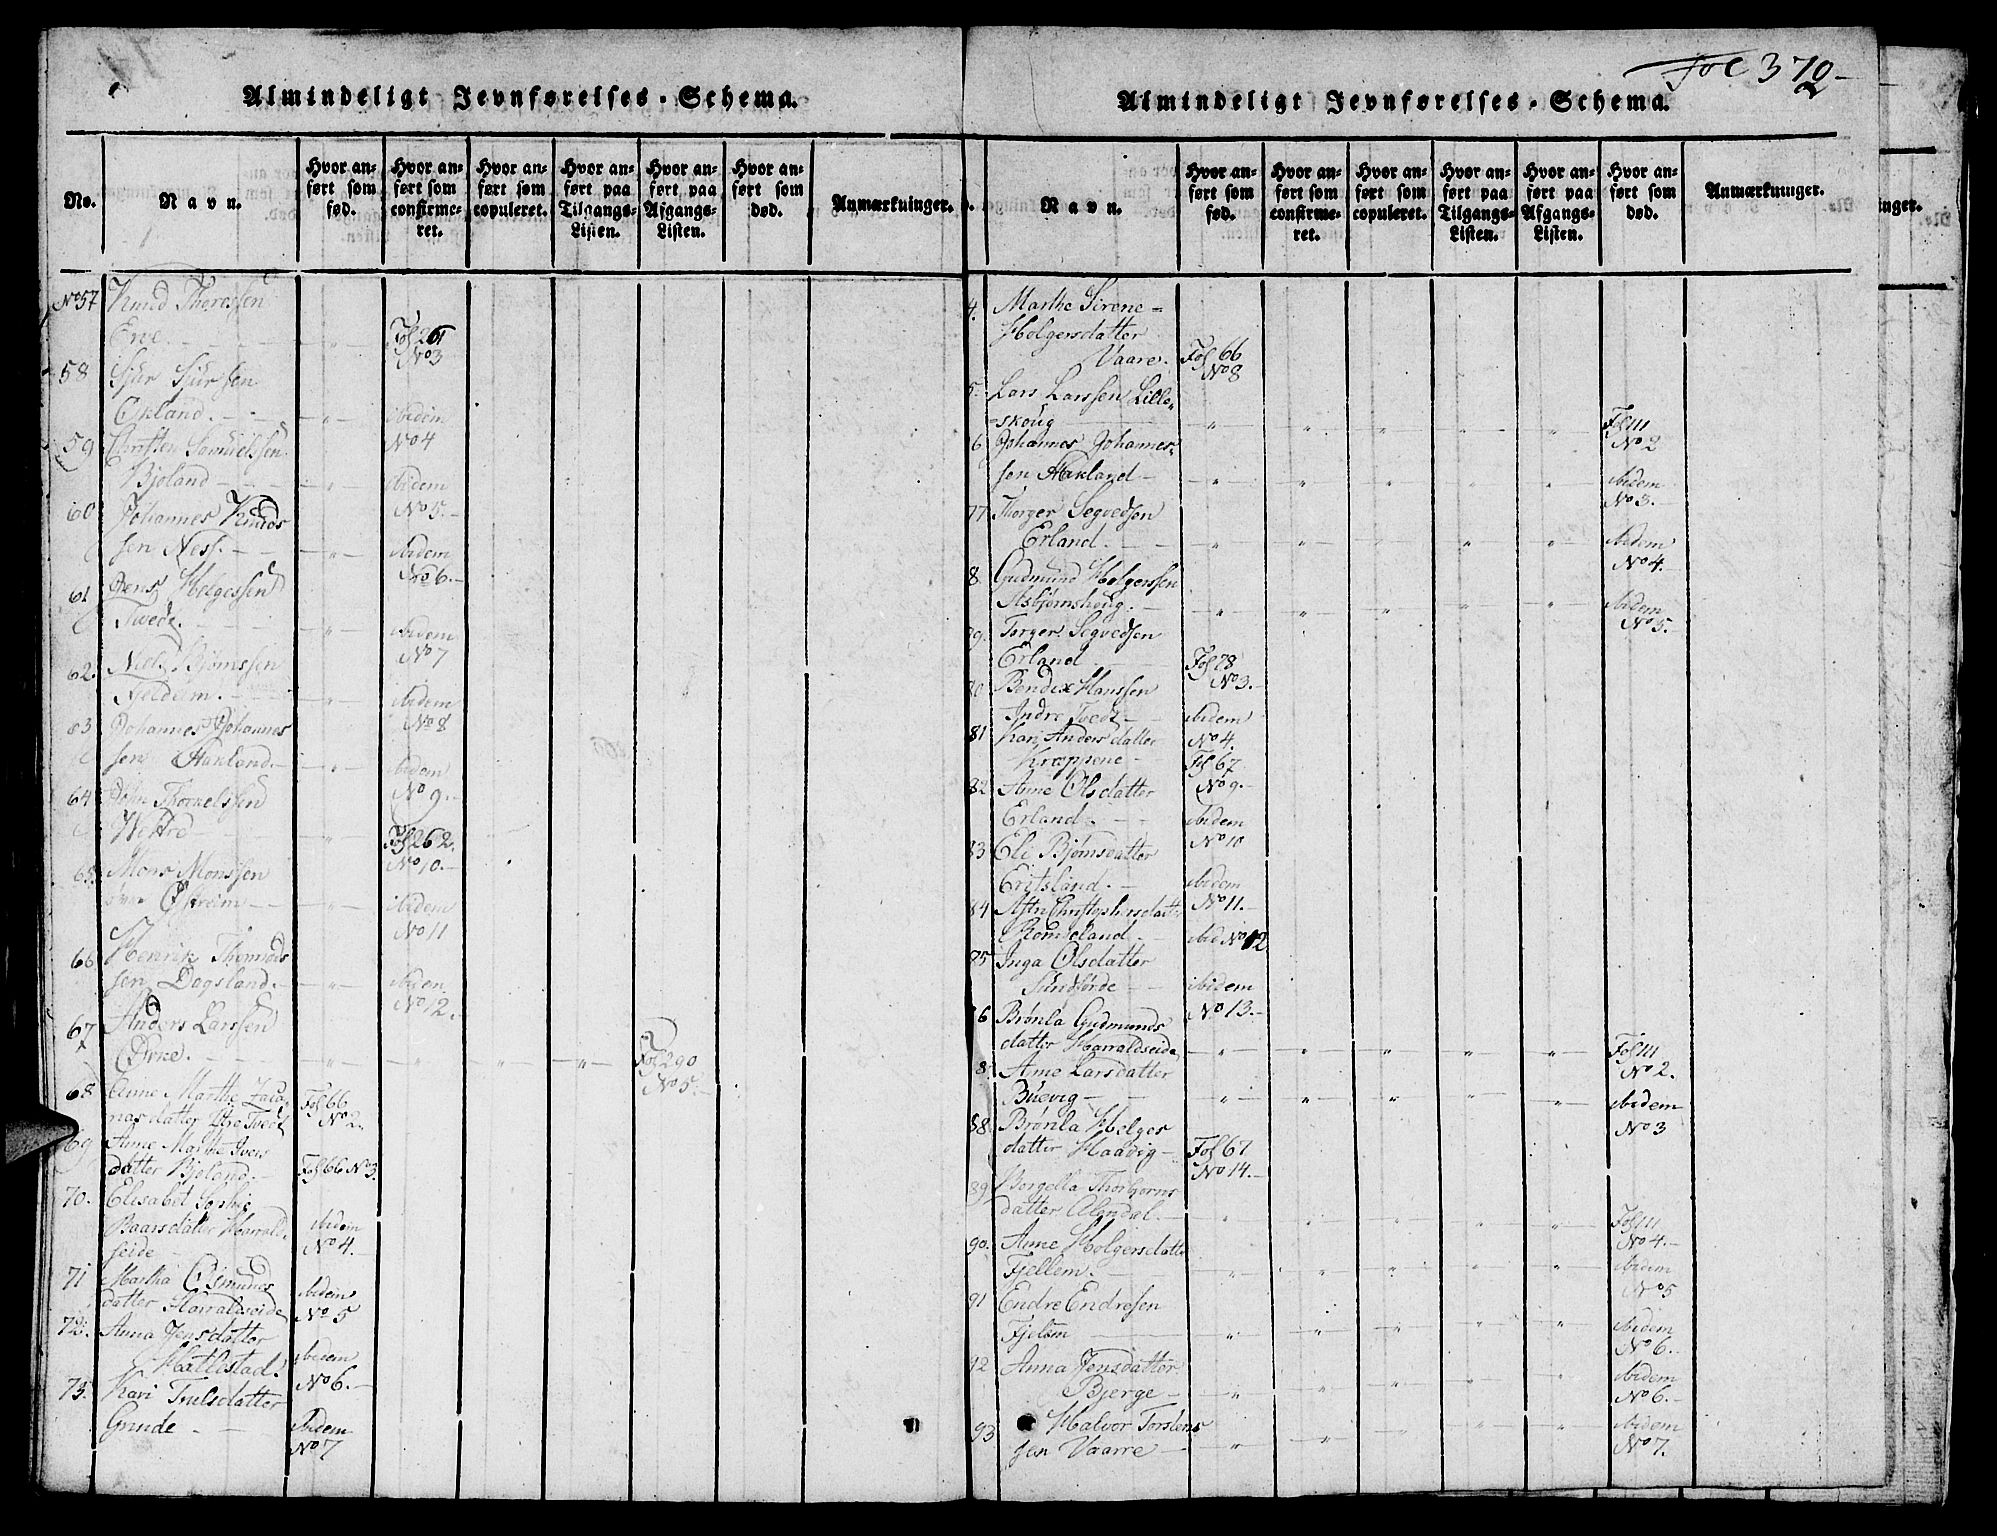 Fol 372
Almindeligt Jevnførelses-Schema.
No.
Navn.
Hvor anført som fød.
Hvor anført som confirmeret.
Hvor anført som copuleret.
Hvor anført paa Tilgangs-Listen.
Hvor anført paa Afgangs-Listen.
Hvor anført som død.
Anmærkninger.
No 57 Knud
Fol 261
No 3
58 Sjur Sjurssen
Økland. ibidem
No 4
59
Bjoland ibidem
No 5.
60 Johannes Knuds
sen Ness. ibidem
No 6.
61 Jens Helgessen
Twede. ibidem
No 7
62. Niels Bjørnssen
ibidem
No 8
63 Johannes Johannes
sen Hakland. ibidem
No 9.
64
Fol 262.
No 10.
65 Mons Monssen
Østreim ibidem
No 11
66 Henrik
sen Dagsland. ibidem
No 12.
67 Anders Larssen
Fol 290
No 5.
68 Anne Marthe
Fol 66
No 2.
datter Ytre Tvedt
69 Anne Marthe Ivers
datter Bjoland. Fol 66 No 3
70. Elisabet Sophie
Baarsdatter Harrald
seide ibidem
No 4.
71 Martha Osmunds
datter Harraldseide ibidem
No 5
72. Anna Jensdatter
ibidem
No 6.
73. Kari Trulsdatter
Grinde ibidem
No 7
Almindeligt Jevnførelses-Schema.
Navn.
Hvor anført som fød.
Hvor anført som confirmeret.
Hvor anført som copuleret.
Hvor anført paa Tilgangs-Listen.
Hvor anført paa Afgangs-Listen.
Hvor anført som død.
Anmærkninger.
4. Marthe Sirene=
Holgersdatter
Vaare. Fol 66
No 8
5. Lars Larssen Lille=
=skoug Fol 111
No 2
6 Johannes Johannes=
sen Hakland ibidem
No 3.
77 Thorger Segvedsen
Erland. ibidem
No 4.
8 Gudmund Holgerssen
Asbjørnshoug. ibidem
No 5.
79. Torger Segvedsen
Erland Fol 78
No 3.
80 Bendix Hanssen
Indre Tvedt ibidem
No 4.
81 Kari Anders datter
Krappene Fol 67
No 9.
82 Anne Olsdatter
Erland. ibidem
No 10
83 Eli Bjørnsdatter
Eritsland. ibidem
No 11.
84 Christophersdatter
ibid No 12
85 Inga Olsdatter
Sundførde ibidem
No 13.
86 Brønla Gudmunds
datter Harraldseide Fol 111
No 2.
8 Anne Larsdatter
Buevig ibidem
No 3
88 Brønla Helges
datter Haavig Fol 67
No 14.
89 Borgella Thorbjørns
datter Fol 111
No 4.
90. Anne Holgersdatter
Fjellem. ibidem
No 5
91 Endre Endresen
Fjelem ibidem
No 6.
92 Anna Jensdatter
Bjerge ibidem
No 6.
93 Halvor Torstens
sen Vaarre ibidem
No 7.